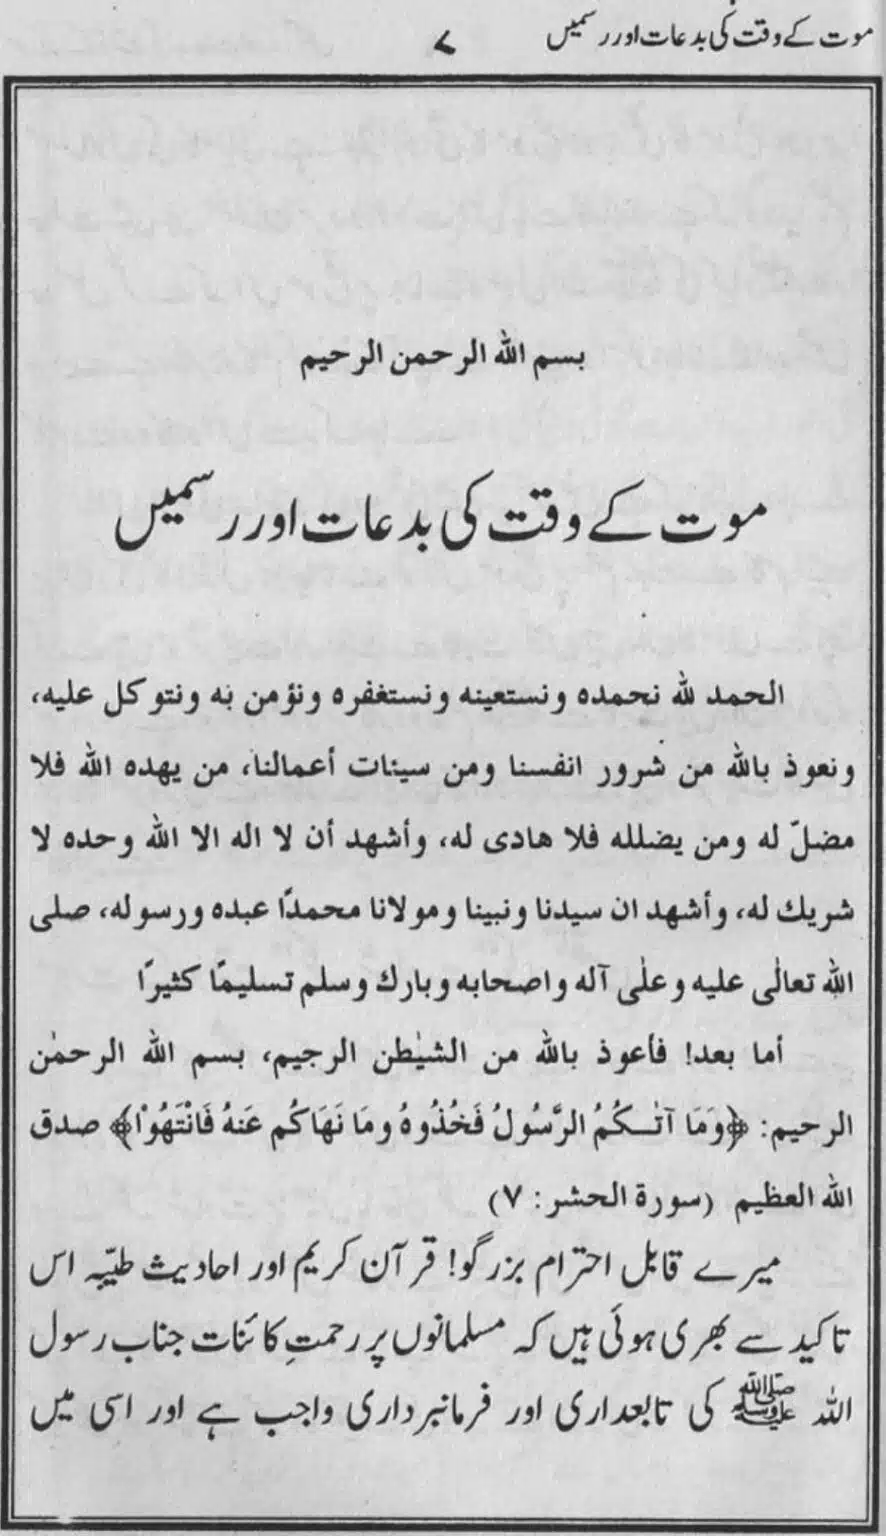 موت کے وقت کی بدعات اور رسمیں ۷
بسم الله الرحمن الرحيم
موت کے وقت کی بدعات اور رسمیں
الحمد لله نحمده ونستعينه ونستغفره ونؤمن به ونتوكل عليه،
ونعوذ بالله من شرور انفسنا ومن سيئات أعمالنا، من يهده الله فلا
مضلّ له ومن يضلله فلا هادى له، وأشهد أن لا اله الا الله وحده لا
شريك له، وأشهد ان سيدنا ونبينا ومولانا محمدًا عبده ورسوله، صلى
الله تعالٰى عليه وعلٰى آله واصحابه وبارك وسلم تسليمًا كثيرًا
أما بعد! فأعوذ بالله من الشيٰطن الرجيم، بسم الله الرحمٰن
الرحيم: ﴿وَمَا آتٰـكُمُ الرَّسُولُ فَخُذُوهُ ومَا نَهَاكُم عَنهُ فَانْتَهُوْا﴾ صدق
الله العظيم (سورة الحشر: ۷)
میرے قابل احترام بزرگو! قرآن کریم اور احادیث طیّبہ اس
تاکید سے بھری ہوئی ہیں کہ مسلمانوں پر رحمتِ کائنات جناب رسول
اللہ ﷺ کی تابعداری اور فرمانبرداری واجب ہے اور اسی میں